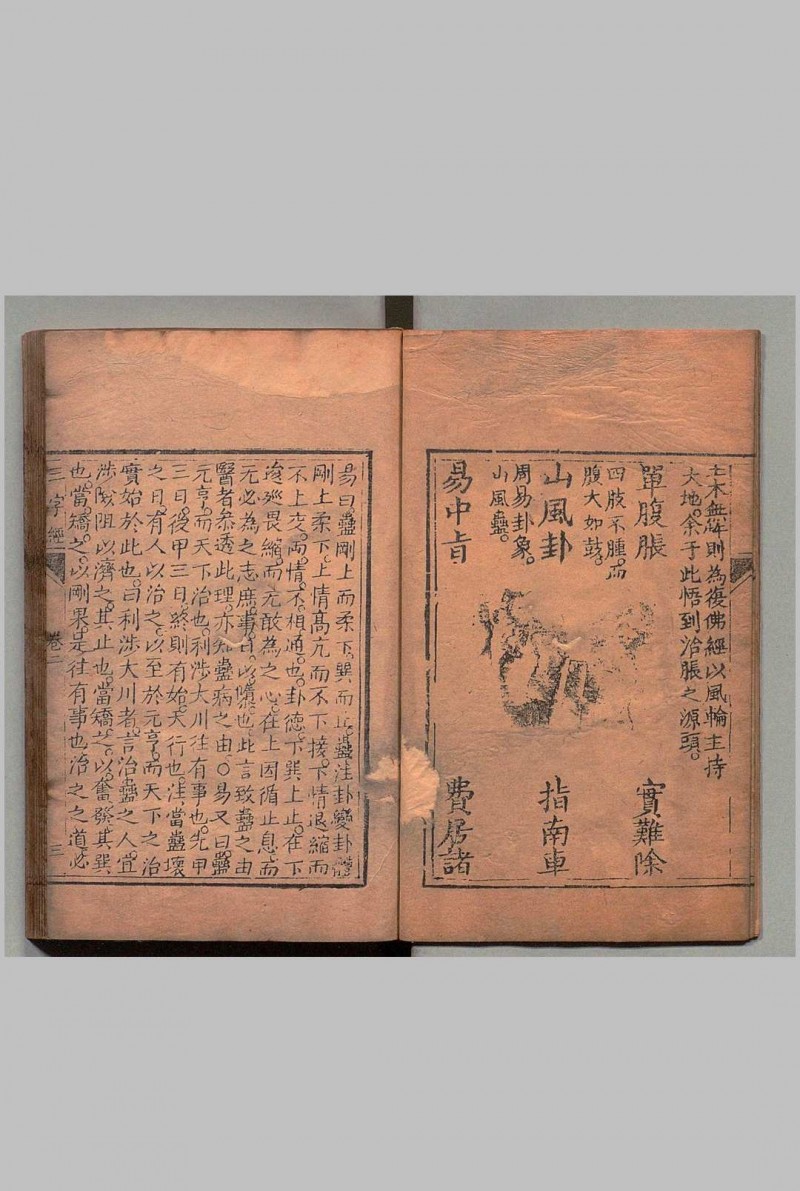 土木無解則為復佛經以風輪主持
大地。余于此悟到治脹之源頭。
單腹脹 實難除
四肢不腫。而
腹大如鼓。
山風卦 指南車
周易卦象。
山風蠱。
易中旨 費居諸
易曰。蠱剛上而柔下。巽而止。蠱注卦變卦體
剛上柔下。上情高亢而不下接。下情退縮而
不上交。兩情不相通也。卦德下巽上止。在下
逡巡畏縮。而无敢為之心。在上因循止息。而
无必為之志。庶事日以隳也。此言致蠱之由
醫者參透此理。亦知蠱病之由。○易又曰。蠱
元亨。而天下治也。利涉大川往有事也。先甲
三日。後甲三日。終則有始。天行也。注。當蠱壞
之日。有人以治之。以至於元亨。而天下之治
實始於此也。曰利涉大川者。言治蠱之人。宜
涉險阻以濟之。其止也。當矯之以奮發。其巽
也。當矯之。以剛果。是往有事也。治之之道。必
三字經 卷二 三